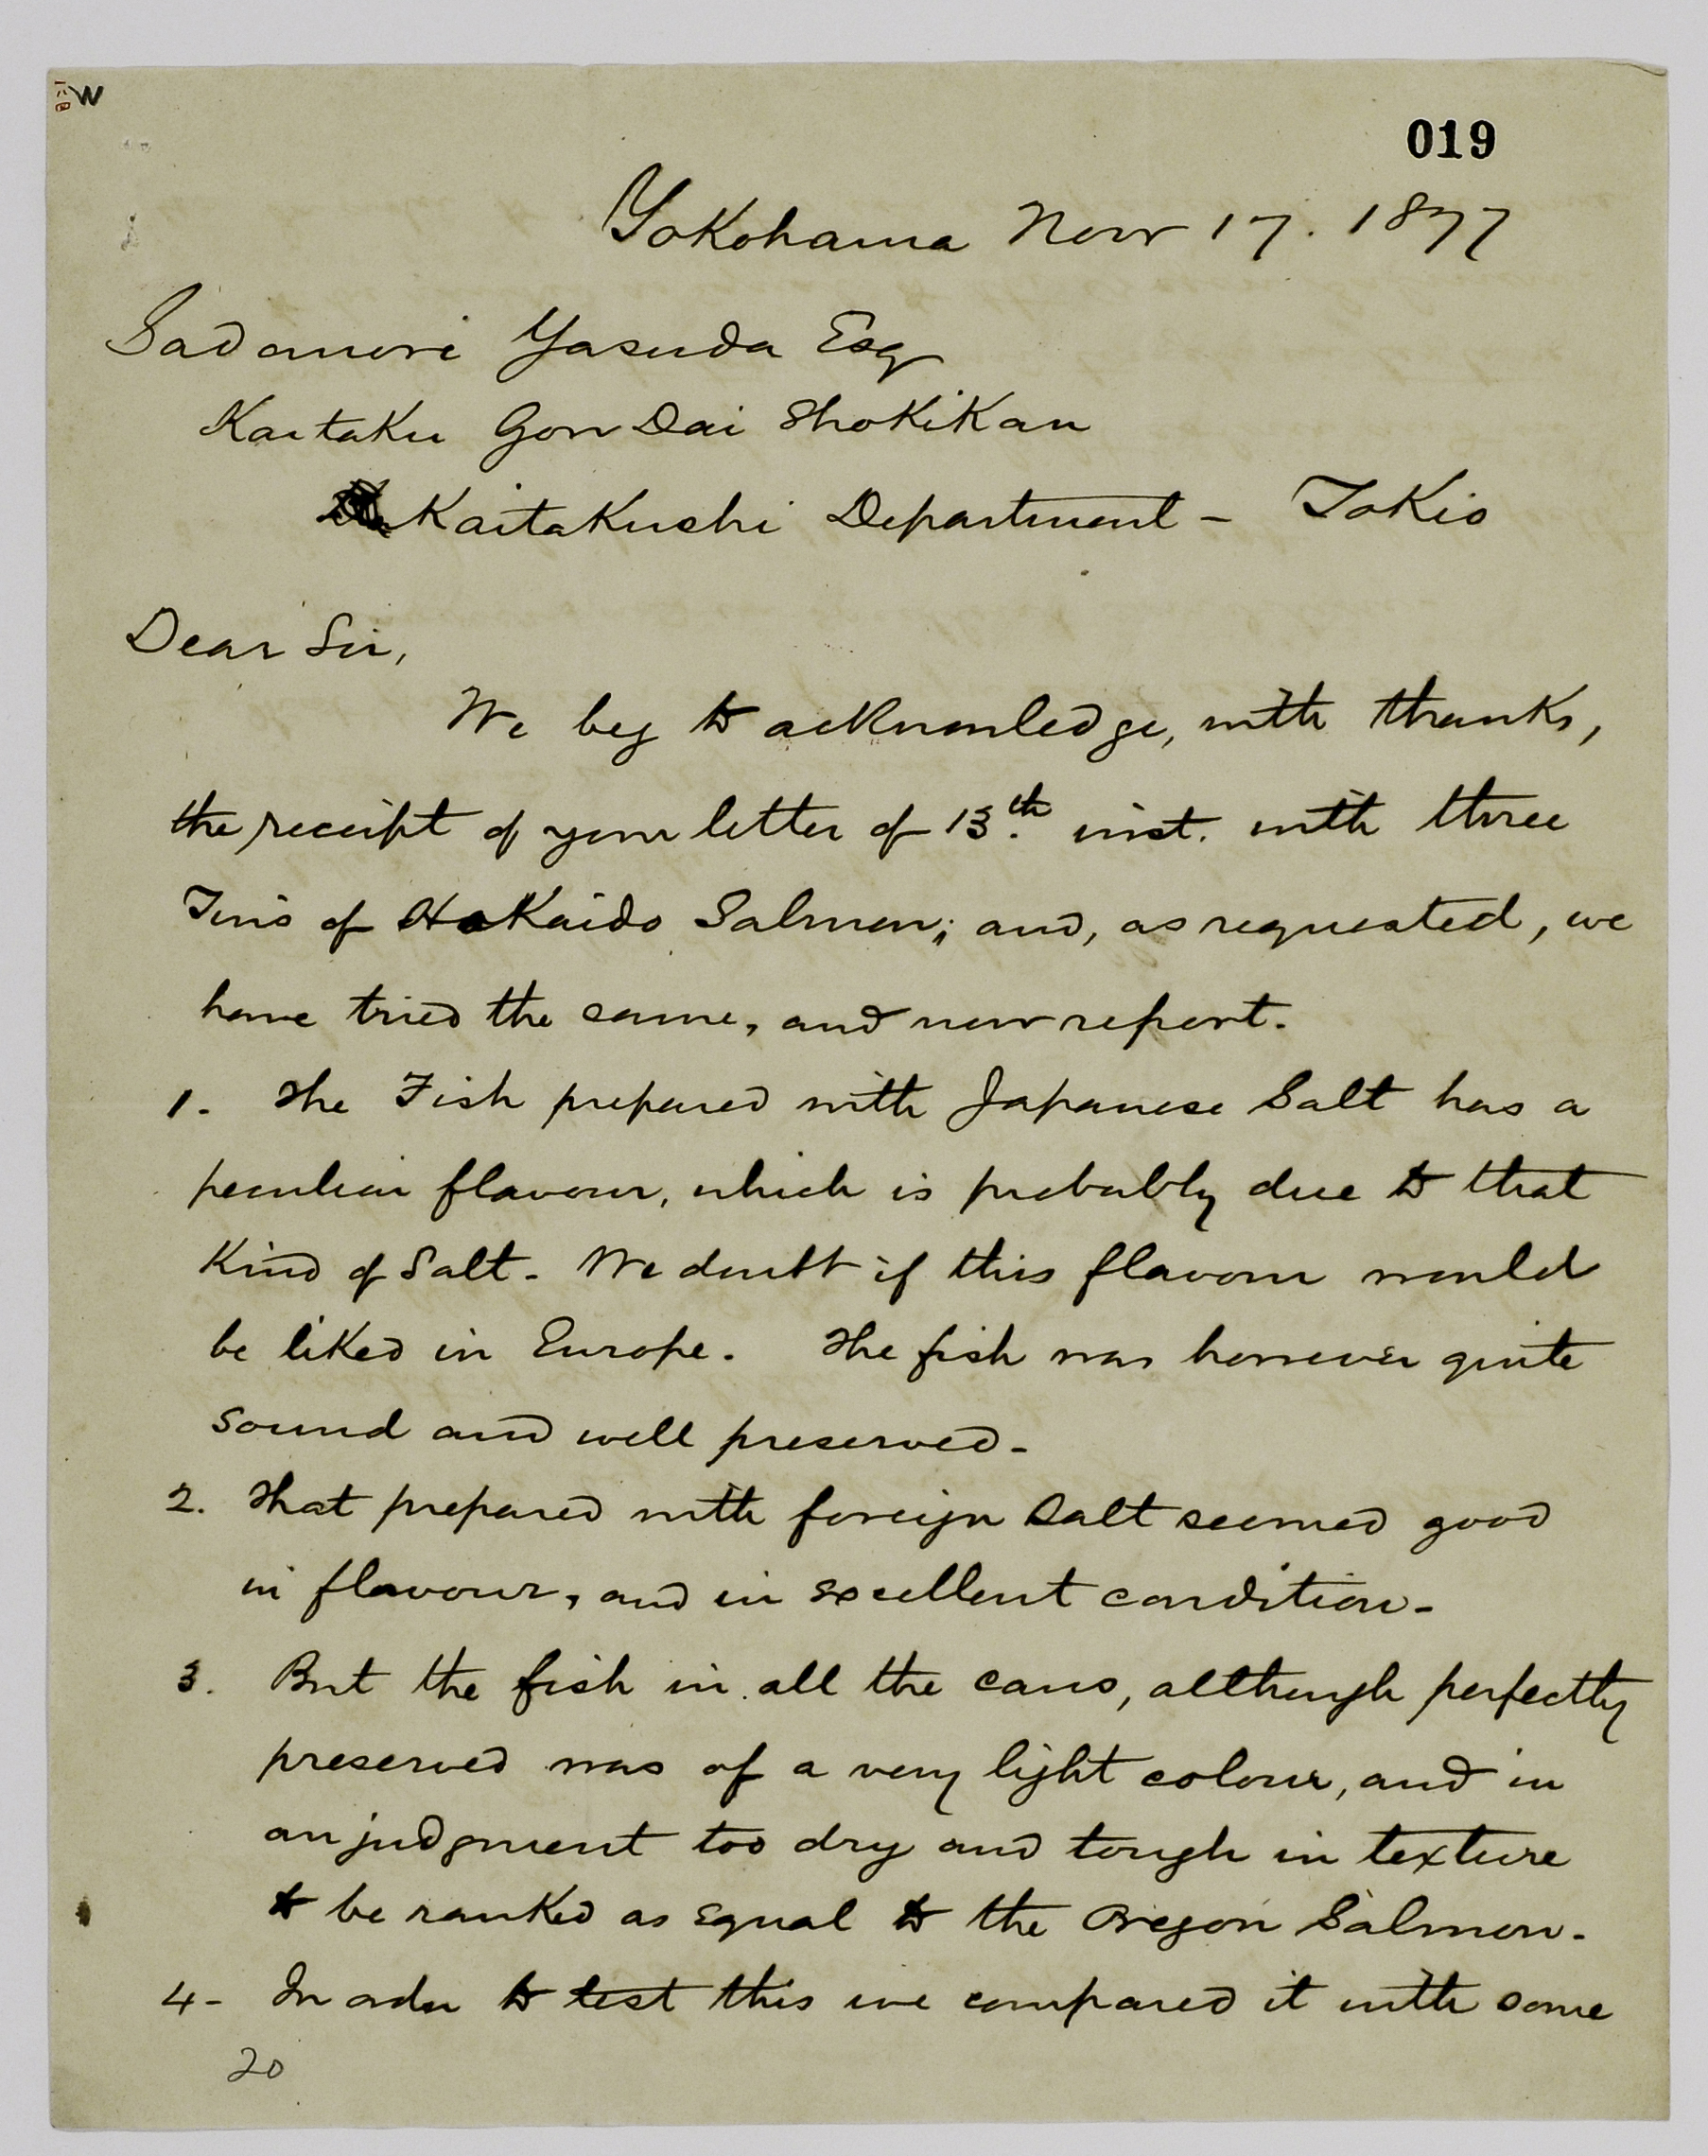 W
019
Yokohama Nov 17. 1877
Sadanori Yasuda Esq
Kaitaku Gon Dai Shokikan
Kaitakushi Department - Tokio
Dear Sir,
We beg to acknowledge, with thanks,
the receipt of your letter of 13.th inst. with three
Tins of Hokaido Salmon; and, as requested, we
have tried the same, and now report.
1. The Fish prepared with Japanese Salt has a
peculiar flavour, which is probably due to that
Kind of Salt. We doubt if this flavour would
be liked in Europe. The fish was however quite
sound and well preserved.
2. That prepared with foreign Salt seemed good
in flavour, and in excellent condition.
3. But the fish in all the cans, although perfectly
preserved was of a very light colour, and in
our judgment too dry and tough in texture
to be ranked as equal to the Oregon Salmon.
4- In order to test this we compared it with some
20